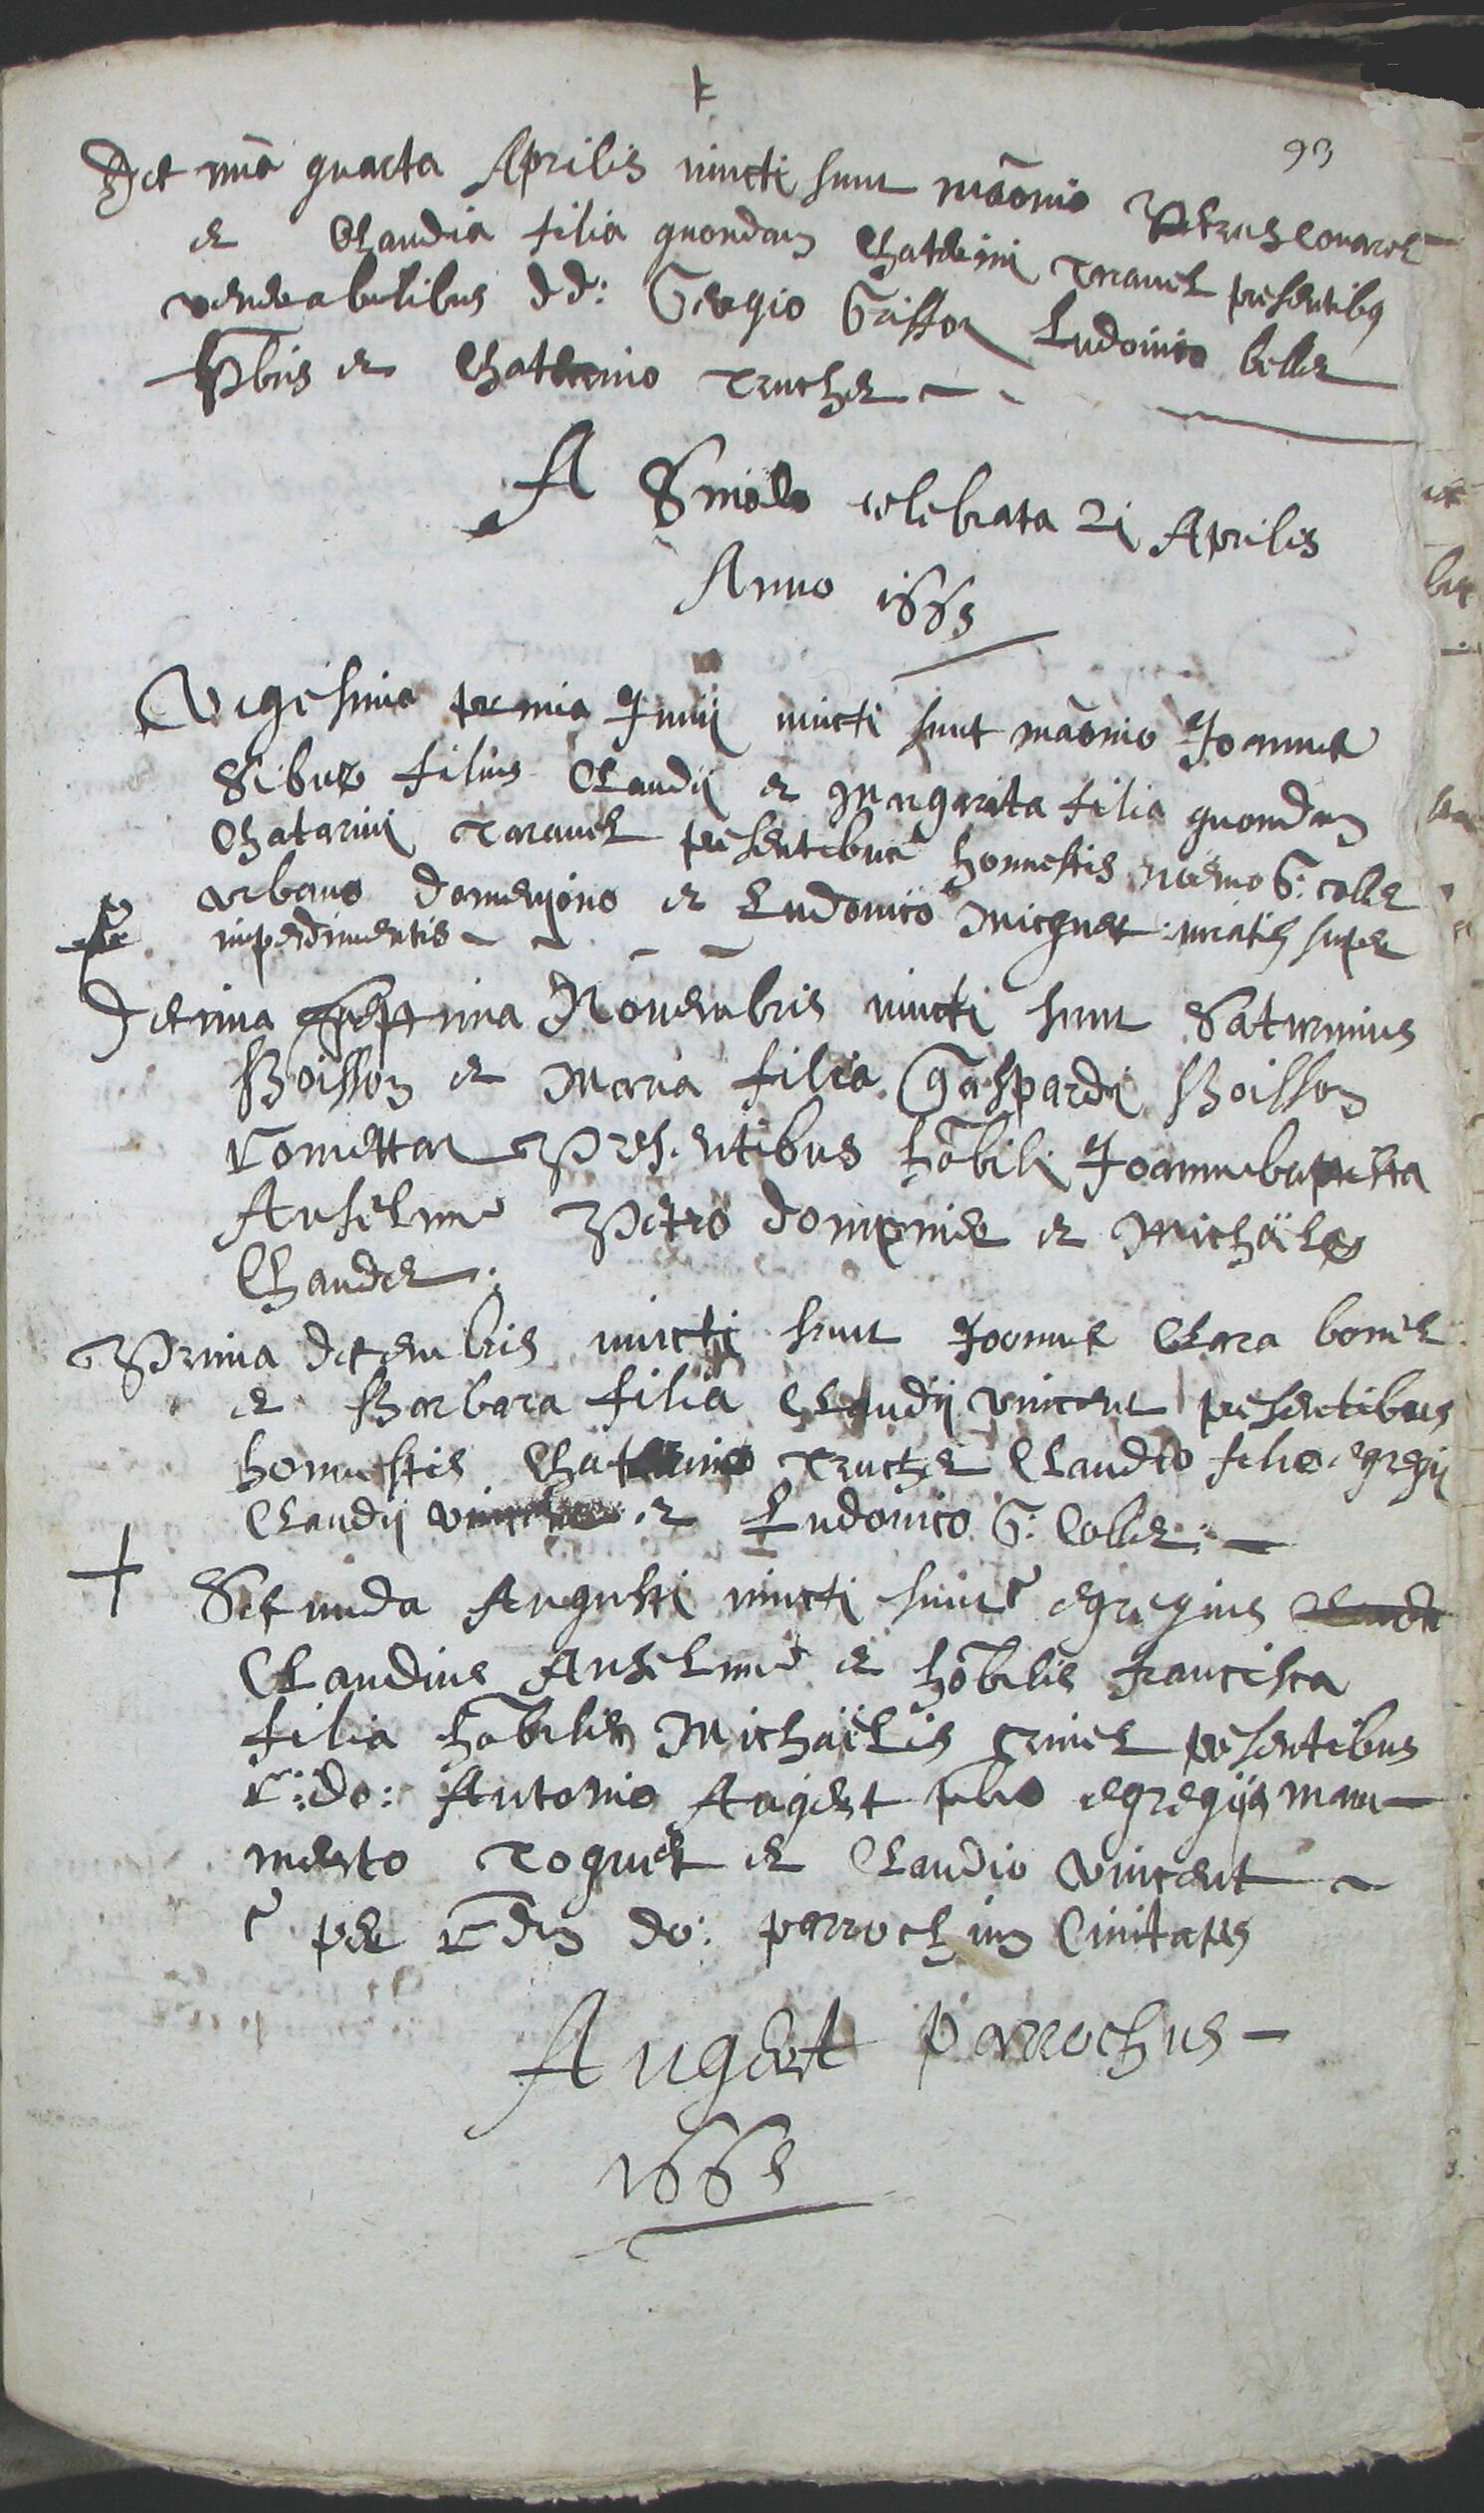 93
Decima quarta Aprilis iuncti sunt mãonio Petrus
et Claudia filia quondam Chaterini Travel presentibus
venerabilibus dd: Georgio Grisson Ludovico beller
pbris et Chaterino Trucher
A Sinodo celebrata 21 Aprilis
Anno 1665
Vigesima Junij iuncti sunt mãonio Joannes
filius Claudij et Margarita filia quondam
Chatarini Taravel presentibus honnestis G: coller
urbano domenjono et Ludovico Micguet super
impedimentis
Decima septima Novembris iuncti sunt Saturninus
Boisson et Maria filia Gaspardi Boisson
presentibus hõbili Joannebaptista
Anselme Petro dompnier et Michäele
Claudel.
Prima decembris iuncti sunt Joannes Clara bonel
et Barbara filia Claudij vincent presentibus
honnestis Chaterino Trucher Claudio filio egregij
Claudij et Ludovico G: Coller:
Secunda Augusti iuncti sunt egregius
Claudius Anselme et hõbilis francisca
filia hõbilis Michaëlis presentibus
r: do: Antonio Augert pbro egregijs mau
merto Toguet et Claudio vincent
per rdum do: parrochum Civitatis
Augert parrochus
1665